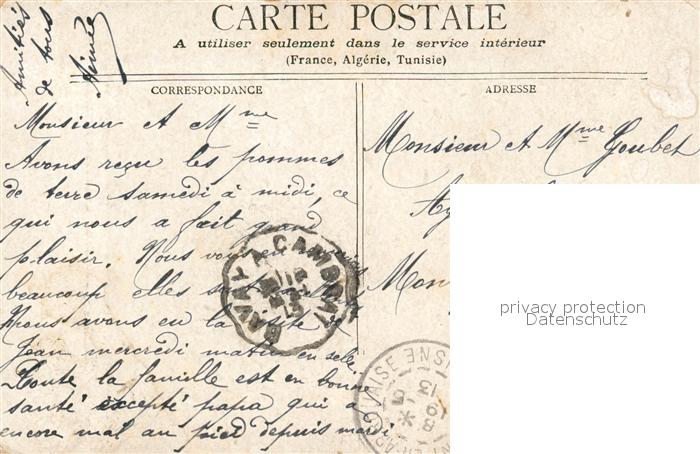 CARTE POSTALE
A utiliser seulement dans le service intérieur
(France, Algérie, Tunisie)
Amitiés
de tous
Aimée
CORRESPONDANCE
Monsieur et Mme
Avons reçu les pommes
de terre samedi à midi, ce
qui nous a fait grand
plaisir. Nous vous en
beaucoup elles sont
Nous avons eu la visite de
Jean mercredi matin en
Toute la famille est en bonne
santé excepté papa qui a
encore mal au pied depuis mardi
BAVAY A CAMBRAI
ADRESSE
Monsieur et Mme Goubet
Mon
VAISE
AISNE
8 * 5
19
13
privacy protection
Datenschutz